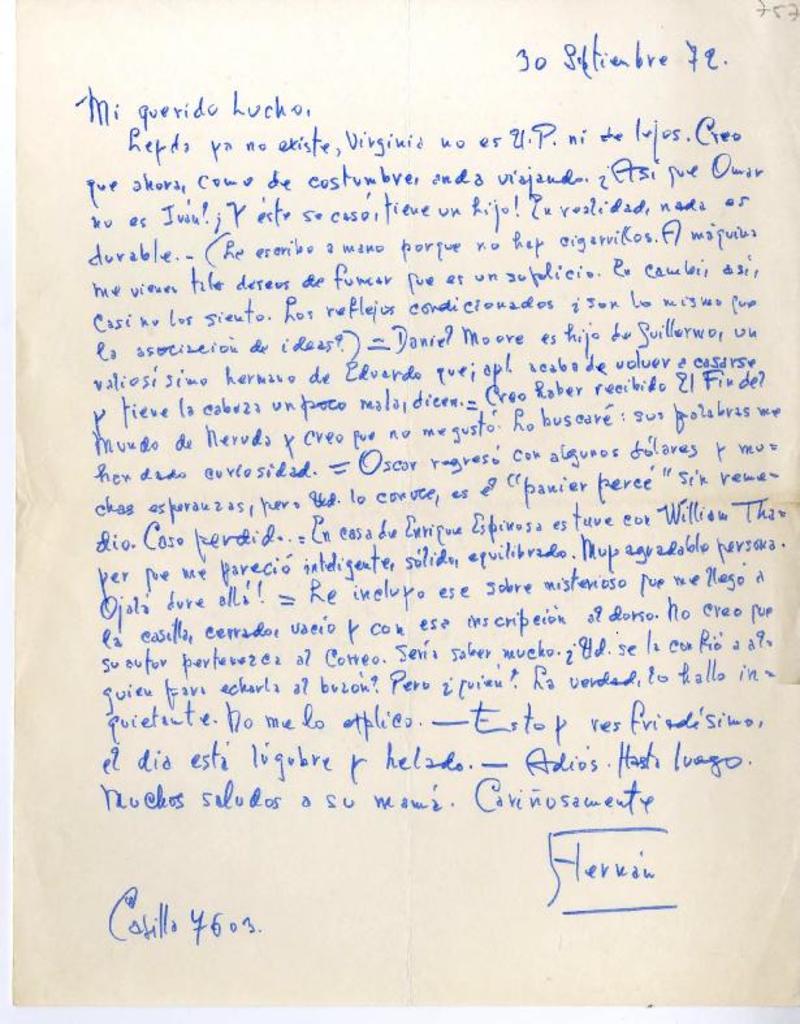 757
30 Septiembre 72.
Mi querido Lucho.
ya no existe, Virginia no es U.P. ni de lejos. Creo
que ahora, como de costumbre, anda viajando. ¿Así que Omar
no es Iván? ¡Y éste se casó, tiene un hijo! En realidad, nada es
durable. - (Le escribo a mano porque no hay cigarrillos. A máquina
me vienen tales deseos de fumar que es un suplicio. En cambio, así,
casi no los siento. Los reflejos condicionados ¿son lo mismo que
la asociación de ideas?) = Daniel Moore es hijo de Guillermo, un
valiosísimo hermano de Eduardo que, acaba de volver a casarse
y tiene la cabeza un poco mala, dicen. = Creo haber recibido El Fin del
Mundo de Neruda y creo que no me gustó. Lo buscaré: sus palabras me
han dado curiosidad. = Oscar regresó con algunos dólares y mu=
chas esperanzas, pero Ud. lo conoce, es el "panier percé" sin reme=
dio. Caso perdido. = En casa de Enrique Espinosa estuve con William Tha=
yer que me pareció inteligente, sólido, equilibrado. Muy agradable persona.
Ojalá dure allá! = Le incluyo ese sobre misterioso que me llegó a
la casilla, cerrado, vacío y con esa inscripción al dorso. No creo que
su autor pertenezca al Correo. Sería saber mucho. ¿Ud. se la confió a al=
guien para echarla al buzón? Pero ¿quién? La verdad, lo hallo in=
quietante. No me lo explico. — Estoy resfriadísimo,
el día está lúgubre y helado. — Adiós. Hasta luego.
Muchos saludos a su mamá. Cariñosamente
Hernán
Casilla 7603.